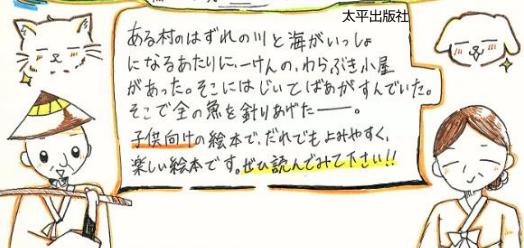 太平出版社
ある村のはずれの川と海がいっしょ
になるあたりに、一けんの、わらぶき小屋
があった。そこにはじいてばあがすんでいた。
そこで全の魚を針りあげた――。
子供向けの絵本で、だれでもよみやすく、
楽しい絵本です。ぜひ読んでみて下さい!!